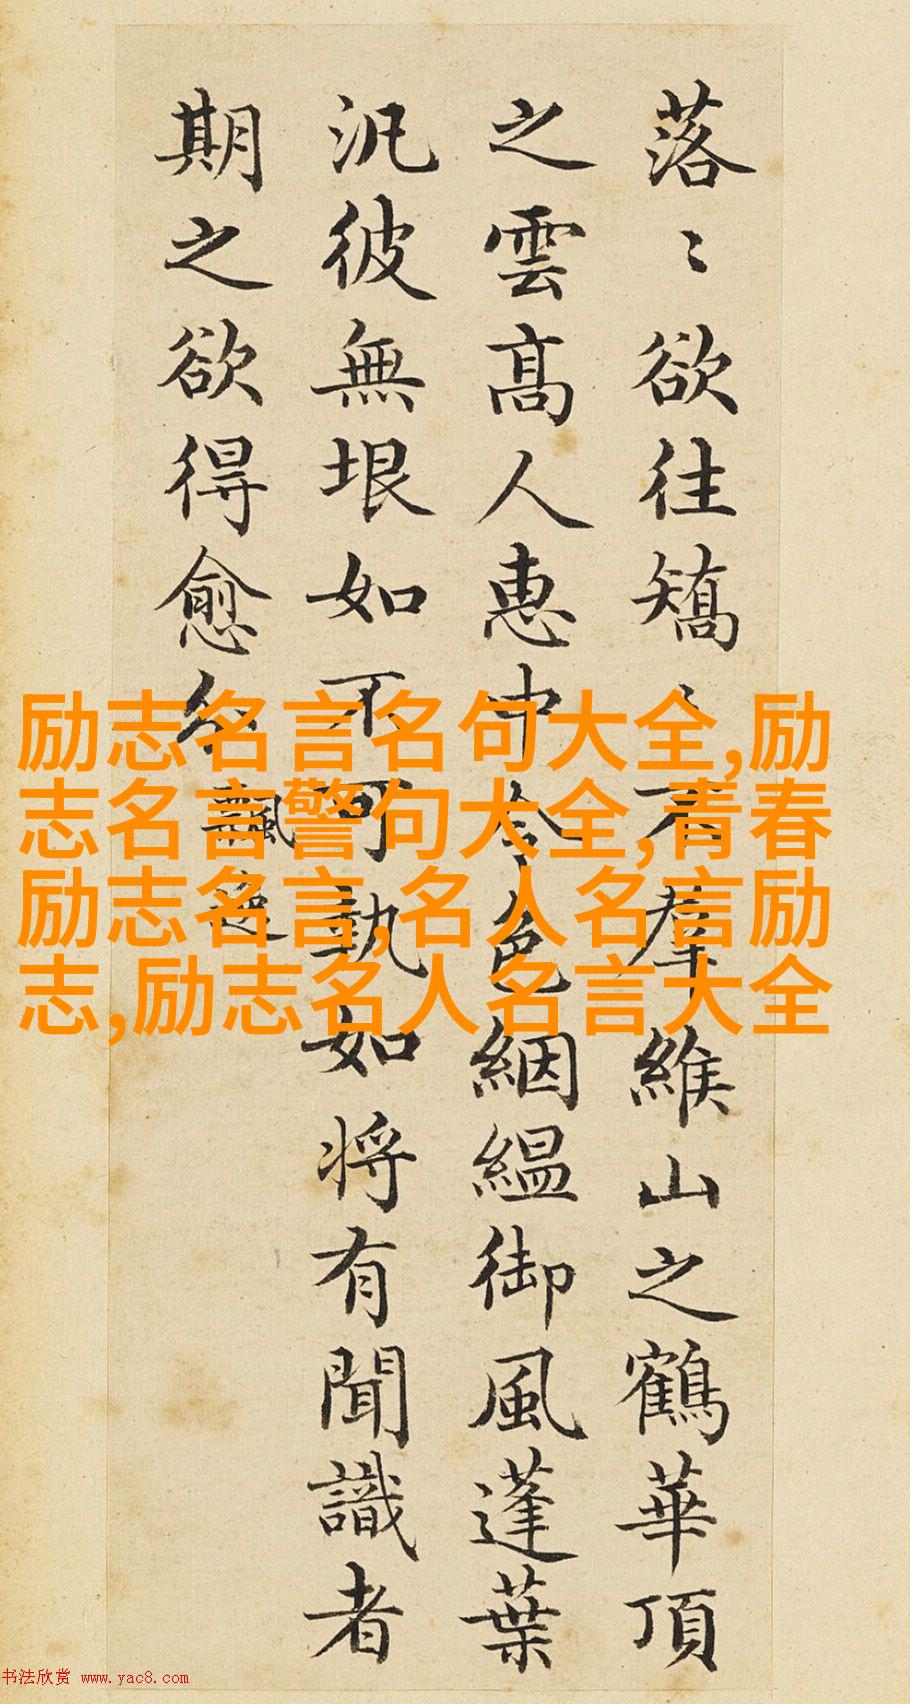 落〻欲往矯〻不羣緱山之鶴華頂
之雲高人惠中令色絪縕御風蓬葉
汎彼無垠如不可執如將有聞識者
期之欲得愈分
飄逸
励志名言名句大全,励
志名言警句大全,青春
励志名言,名人名言励
志,励志名人名言大全
书法欣赏 www.yac8.com